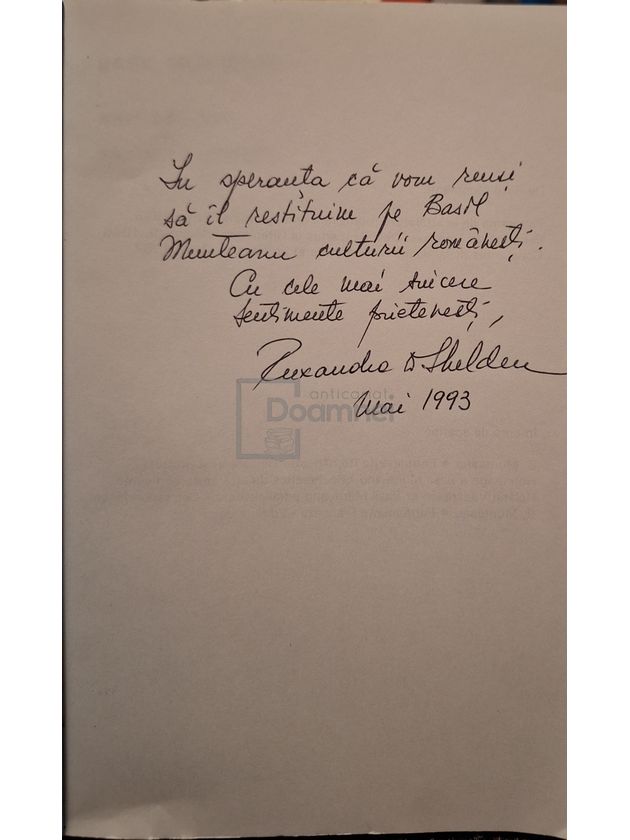 In speranța că vom reuși
să îl restituim pe Basil
Munteanu culturii românești.
Cu cele mai sincere
sentimente prietenești,
Ruxandra D Shelden
anticariat
Doamnei
Mai 1993